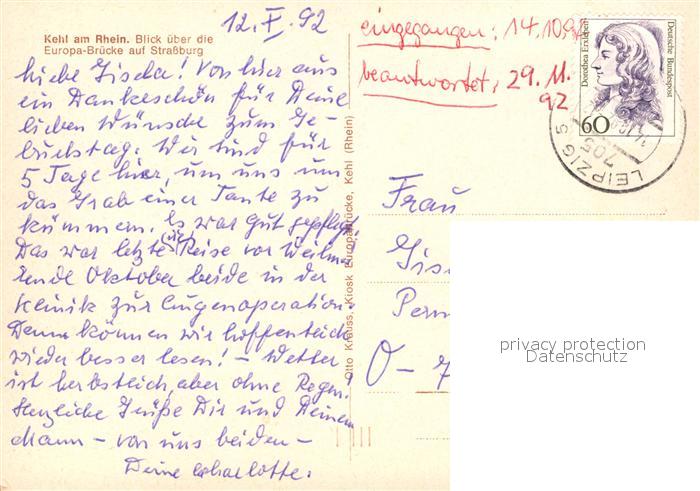 Kehl am Rhein. Blick über die
Europa-Brücke auf Straßburg
12. X. 92
Liebe Gisela! Von hier aus
ein Dankeschön für Deine
lieben Wünsche zum Ge-
burtstag. Wir sind für
5 Tage hier, um uns um
das Grab einer Tante zu
kümmern. Es war gut gepflegt.
Das war letzte Reise vor
Ende Oktober beide in der
Klinik zur Augenoperation.
Dann können wir hoffentlich
wieder besser lesen! – Wetter
ist herbstlich, aber ohne Regen!
Herzliche Grüße Dir und Deinem
Mann – von uns beiden –
Deine Charlotte.
Otto Krauss, Kiosk Europabrücke, Kehl (Rhein)
eingegangen: 14.10.92
beantwortet: 29. 11.
92
Dorothea Erxleben
Deutsche Bundespost
60
LEIPZIG 5
705
Frau
Gis
O - 7
privacy protection
Datenschutz